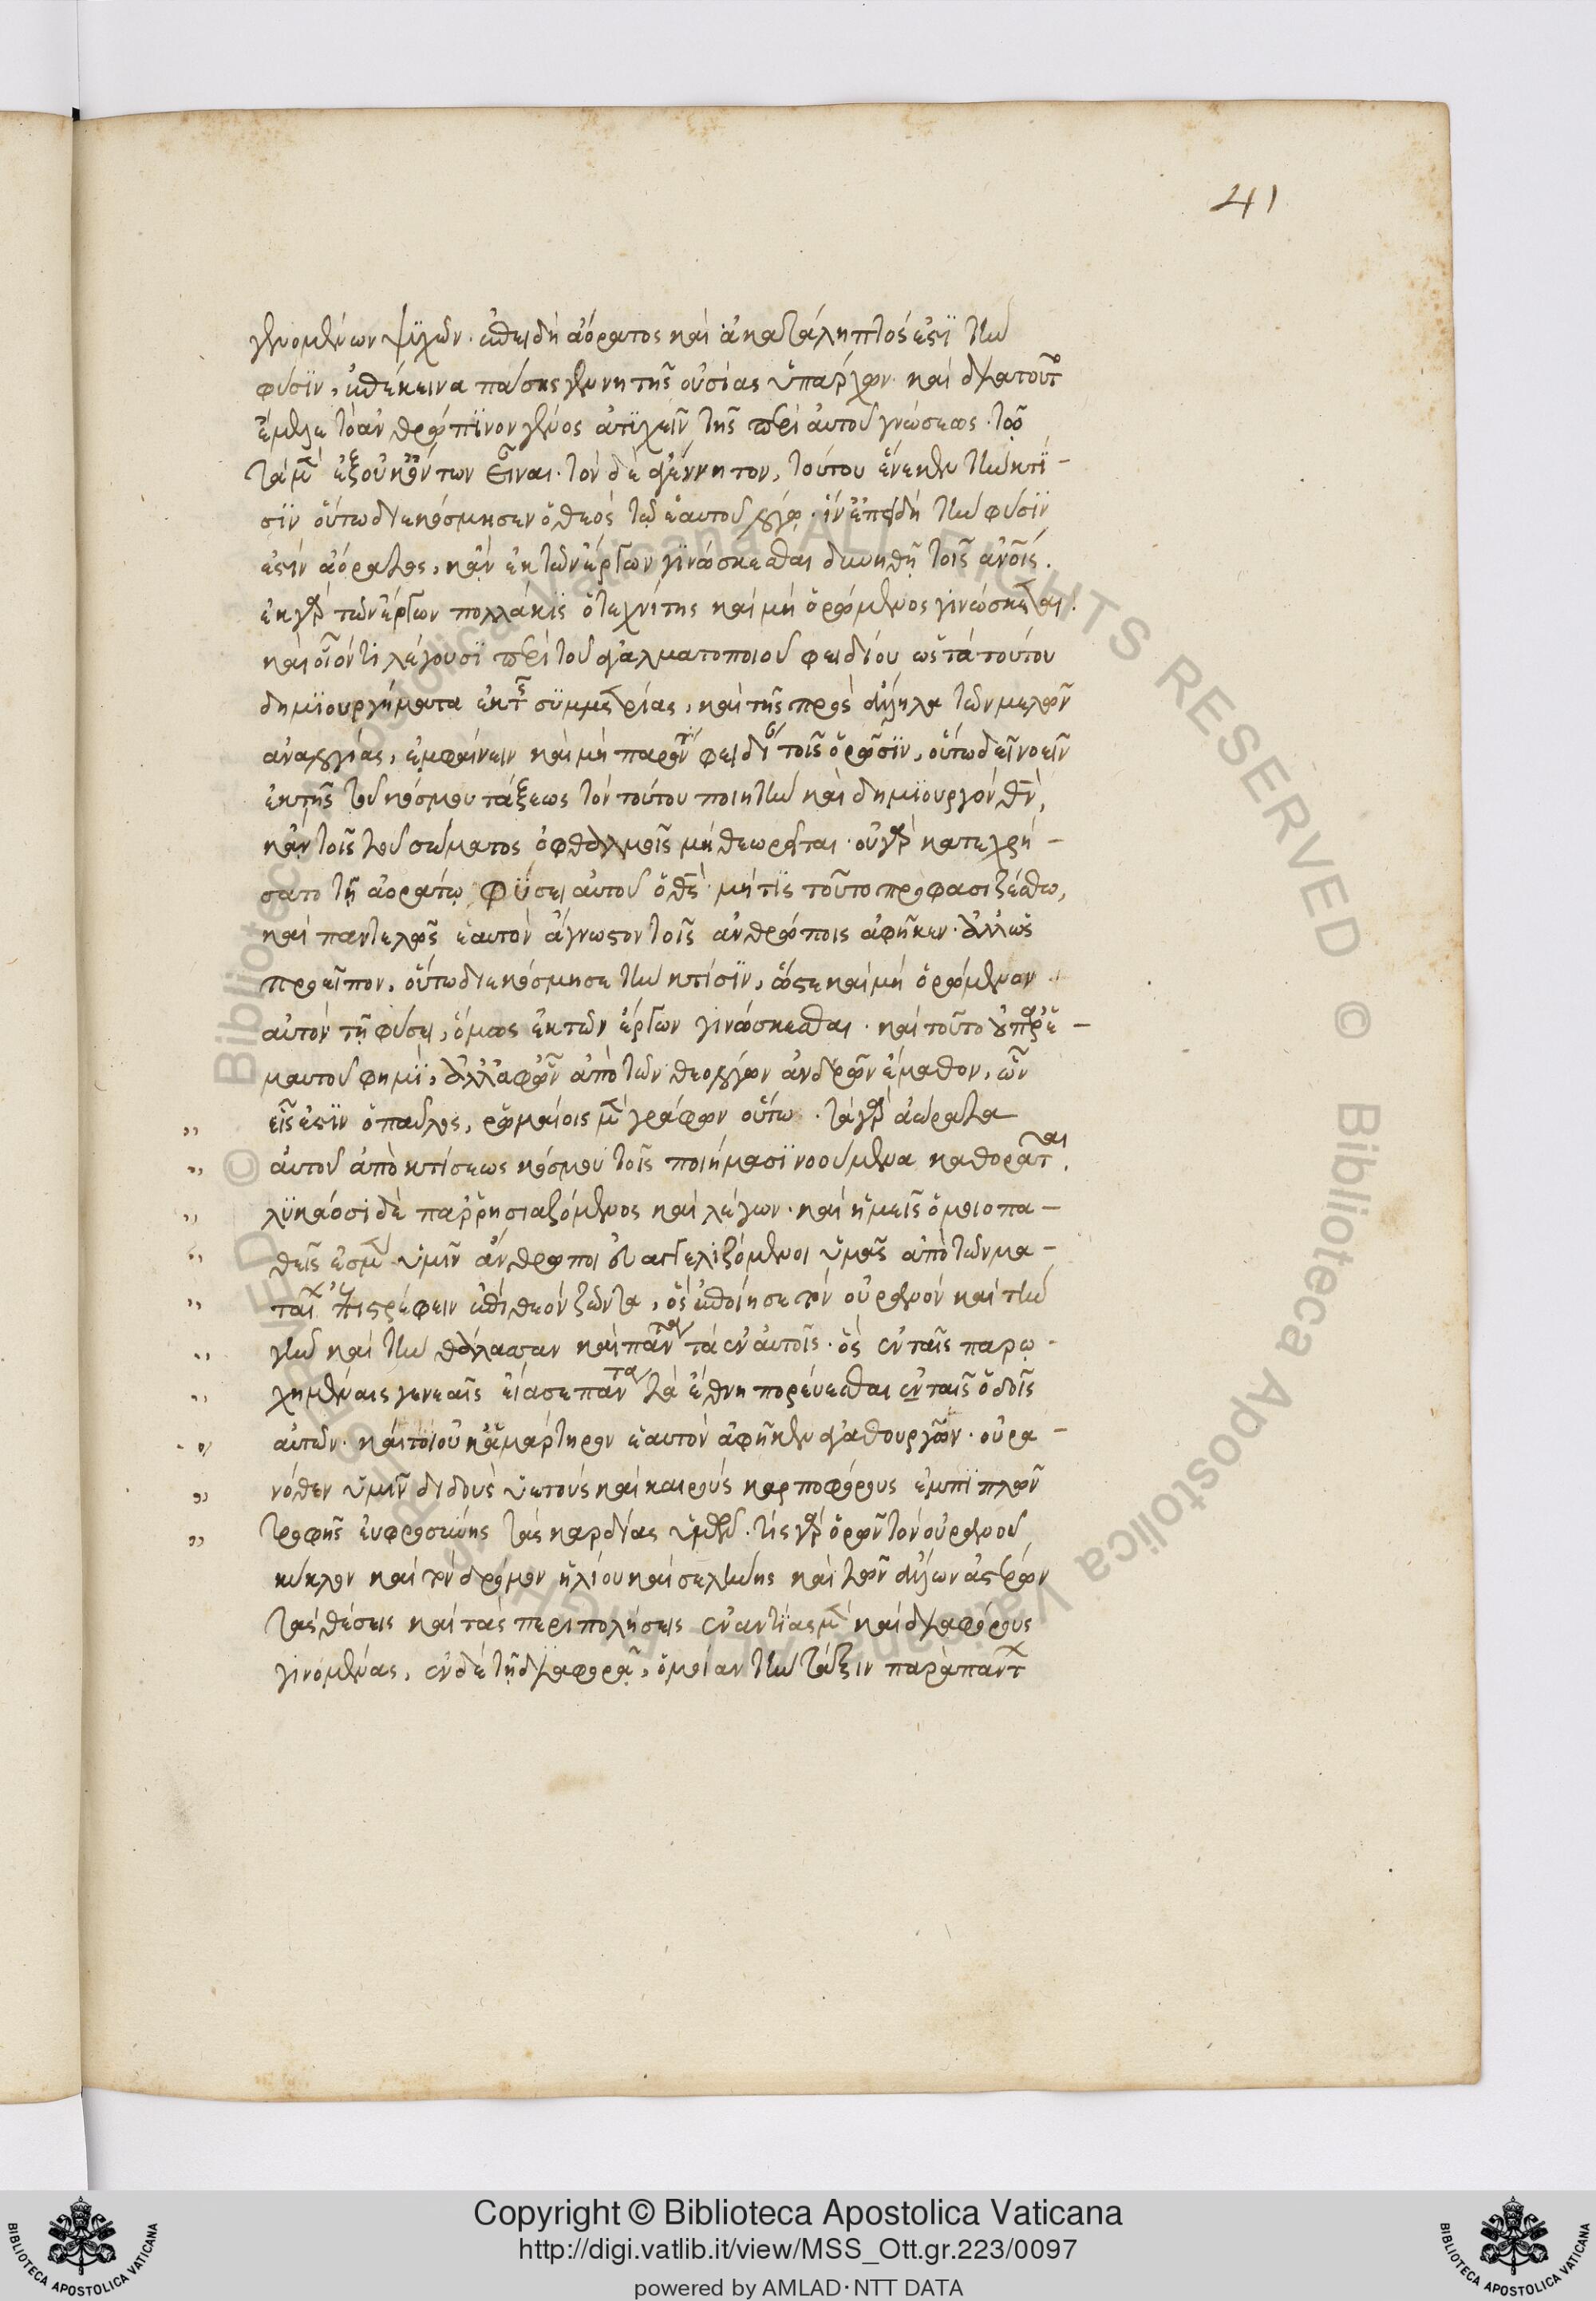 41
γενομένων ψυχῶν. ἐπειδὴ ἀόρατος καὶ ἀκατάληπτός ἐστι τὴν
φύσιν, ἐπέκεινα πάσης γενητῆς οὐσίας ὑπάρχων. καὶ διὰ τοῦτο
ἔμελλε τὸ ἀνθρώπινον γένος ἀτυχεῖν τῆς περὶ αὐτοῦ γνώσεως. τῷ
τὰ μὲν ἐξ οὐκ ὄντων εἶναι. τὸν δὲ ἀγέννητον, τούτου ἕνεκεν τὴν κτί-
σιν οὕτω διεκόσμησεν ὁ θεὸς τῷ ἑαυτοῦ λόγῳ. ἵν ἐπειδὴ τὴν φύσιν
ἐστὶν ἀόρατος, κἂν ἐκ τῶν ἔργων γινώσκεσθαι δυνηθῇ τοῖς ἀνοις.
ἐκ γὰρ τῶν ἔργων πολλάκις ὁ τεχνίτης καὶ μὴ ὁρώμενος γινώσκεται.
καὶ οἷόν τι λέγουσι περὶ τοῦ ἀγαλματοποιοῦ φειδίου ὡς τὰ τούτου
δημιουργήματα ἐκ τῆς συμμετρίας, καὶ τῆς πρὸς ἄλληλα τῶν μελῶν
ἀναλογίας, ἐμφαίνειν καὶ μὴ παρόντα φειδίαν τοῖς ὁρῶσιν, οὕτω δεῖ νοεῖν
ἐκ τῆς τοῦ κόσμου τάξεως τὸν τούτου ποιητὴν καὶ δημιουργὸν θν,
κἂν τοῖς τοῦ σώματος ὀφθαλμοῖς μὴ θεωρῆται. οὐ γὰρ κατεχρή-
σατο τῇ ἀοράτῳ φύσει αὐτοῦ ὁ θς. μή τις τοῦτο προφασιζέσθω,
καὶ παντελῶς ἑαυτὸν ἄγνωστον τοῖς ἀνθρώποις ἀφῆκεν. ἀλλ ὡς
προεῖπον, οὕτω διεκόσμησε τὴν κτίσιν, ὥστε καὶ μὴ ὁρώμενον
αὐτὸν τῇ φύσει, ὅμως ἐκ τῶν ἔργων γινώσκεσθαι. καὶ τοῦτο οὐ παρ ἐ-
μαυτοῦ φημι, ἀλλ ἀφ ὧν ἀπὸ τῶν θεολόγων ἀνδρῶν ἔμαθον, ὧν
εἷς ἐστιν ὁ παῦλος, ῥωμαίοις μὲν γράφων οὕτω. τὰ γὰρ ἀώρατα
αὐτοῦ ἀπὸ κτίσεως κόσμου τοῖς ποιήμασι νοούμενα καθορᾶται.
λυκάοσι δὲ παρρησιαζόμενος καὶ λέγων. καὶ ἡμεῖς ὁμοιοπα-
θεῖς ἐσμὲν ὑμῖν ἄνθρωποι εὐαγγελιζόμενοι ὑμᾶς ἀπὸ τῶν μα-
ταίων ἐπιστρέφειν ἐπὶ θεὸν ζῶντα, ὃς ἐποίησε τὸν οὐρανὸν καὶ τὴν
γῆν καὶ τὴν θάλασσαν καὶ πάντα τὰ ἐν αὐτοῖς. ὃς ἐν ταῖς παρῳ-
χημέναις γενεαῖς εἴασε πάντα τὰ ἔθνη πορεύεσθαι ἐν ταῖς ὁδοῖς
αὐτῶν. καίτοι οὐκ ἀμάρτηρον ἑαυτὸν ἀφῆκεν ἀγαθουργῶν. οὐρα-
νόθεν ὑμῖν διδοὺς ὑετοὺς καὶ καιροὺς καρποφόρους ἐμπιπλῶν
τροφῆς εὐφροσύνης τὰς καρδίας ὑμῶν. τίς γὰρ ὁρῶν τὸν οὐρανοῦ
κύκλον καὶ τὸν δρόμον ἡλίου καὶ σελήνης καὶ τῶν ἄλλων ἀστρων
τὰς θέσεις καὶ τὰς περιπολήσεις ἐναντίας μὲν καὶ διαφόρους
γινομένας, ἐν δὲ τῇ διαφορᾷ, ὁμοίαν τὴν τάξιν παρὰ πάντων
Copyright © Biblioteca Apostolica Vaticana
http://digi.vatlib.it/view/MSS_Ott.gr.223/0097
powered by AMLAD·NTT DATA
BIBLIOTECA APOSTOLICA VATICANA
BIBLIOTECA APOSTOLICA VATICANA